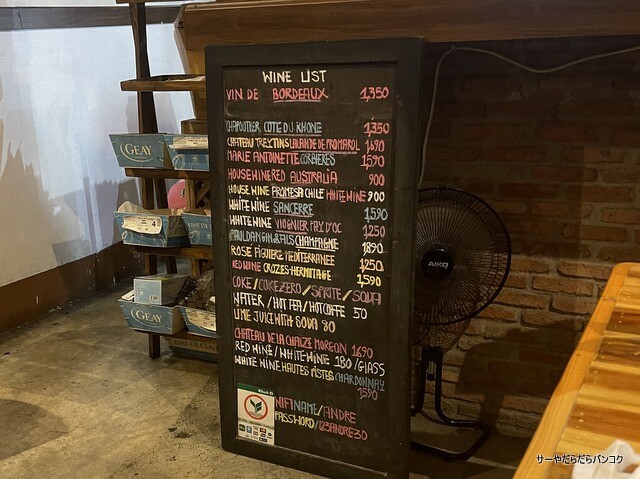 WINE LIST
VIN DE BORDEAUX 1,350
CHAPOUTIER COTE DU RHONE 1,350
CHATEAU TREYTINS LALANDE DE POMAROL 1,690
MARIE ANTOINETTE CORBIERES 1,590
HOUSE WINE RED AUSTRALIA 900
HOUSE WINE PROMESA CHILE WHITE WINE 900
WHITE WINE SANCERRE 1,590
WHITE WINE VIOGNIER PAY D'OC 1250
PAUL DANGIN & FILS CHAMPAGNE 1,890
ROSE FIGUIERE MEDITERRANEE 1,250
RED WINE CROZES-HERMITAGE 1,590
COKE / COKE ZERO / SPRITE / SODA
WATER / HOT TEA / HOT COFFE 50
LIME JUICE WITH SODA 80
CHATEAU DE LA CHAIZE MORGON 1690
RED WINE / WHITE WINE 180 / GLASS
WHITE WINE HAUTES PISTES CHARDONNAY
1590
WIFI NAME / ANDRE
PASSWORD / 123ANDRE30
GEAY
GEAY
GEAY
AIKO
サーやだらだらバンコク